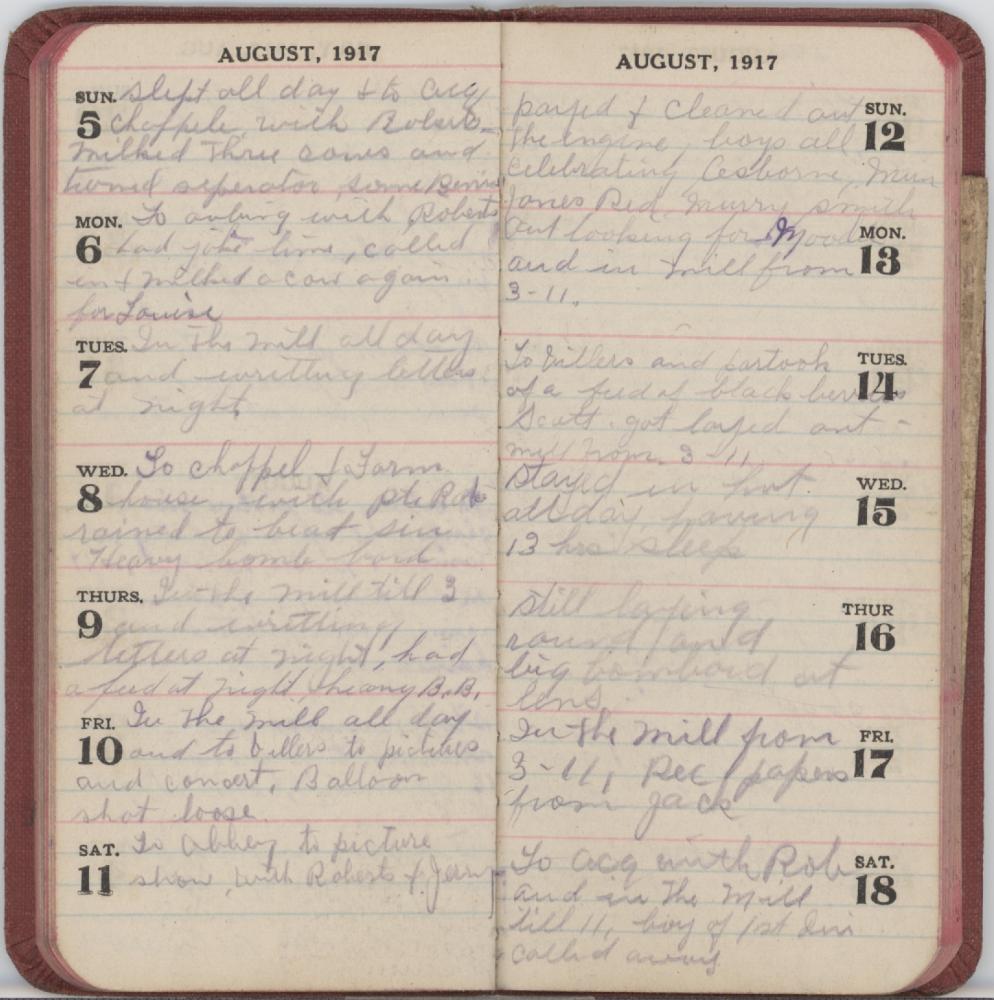 AUGUST, 1917
SUN. Slept all day & to Acq
5 Chappele, with Roberts
Milked Three cows and
turned seperator, some
MON. To aubing with Roberts
6 had joke time, called
in & milked a cow again
for Louise
TUES. In The mill all day
7 and writting letters
at night
WED. To chappel & Farm
8 house with pte Rob
rained to beat sin
Heavy bomb bard
THURS. In the mill till 3
9 and writting
letters at night, had
a feed at night heavy B.B.
FRI. In The mill all day
10 and to Villers to pictures
and concert, Balloon
shot loose.
SAT. To Abbey to picture
11 show, with Roberts & Jerry
AUGUST, 1917
payed & cleaned out SUN.
the engine, boys all 12
celebrating Osborne,
Jones Red Murry smith
out looking for MON.
and in mill from 13
3-11.
To Villers and partook TUES.
of a feed of black berries 14
Scott got layed out -
mill from 3-11
Stayed in hut WED.
all day, having 15
13 hrs sleep
Still laying THUR
round and 16
big bombard at
lens.
In the mill from FRI.
3-11, Rec papers 17
from Jack
To Acq with Rob SAT.
and in The Mill 18
till 11, boy of 1st Div
called away